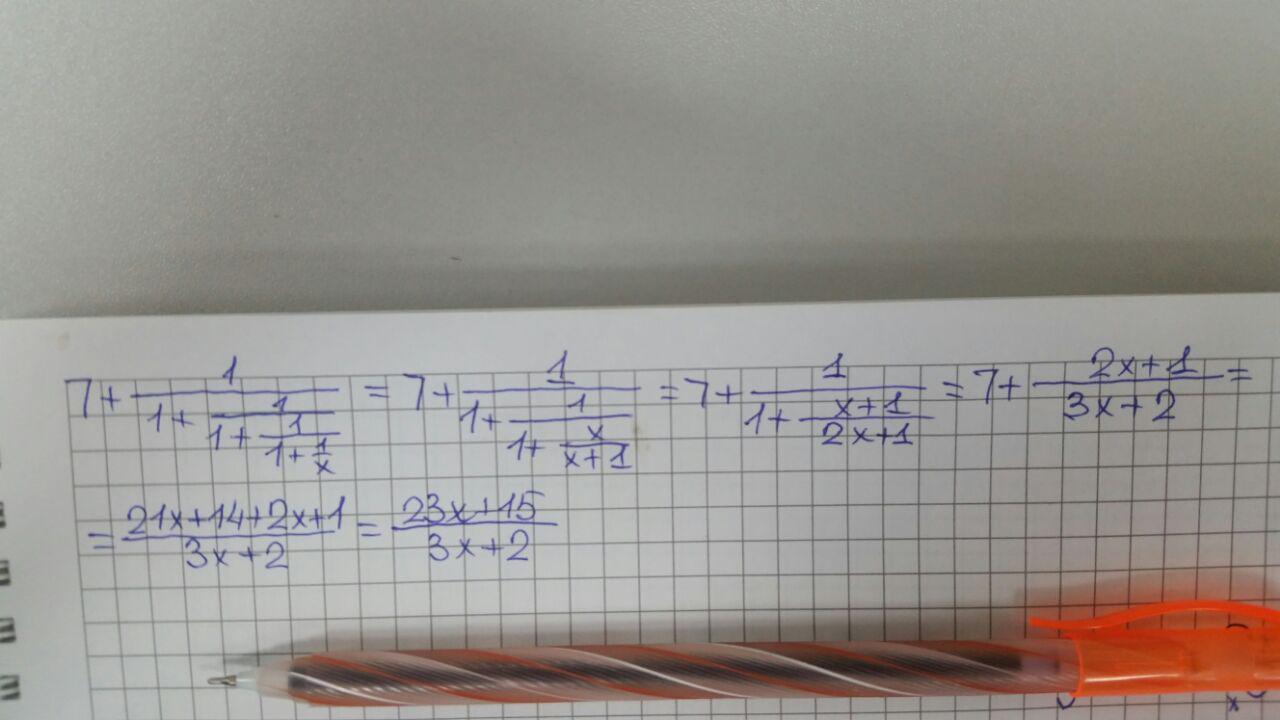 7 + \frac{1}{1 + \frac{1}{1 + \frac{1}{1 + \frac{1}{x}}}} = 7 + \frac{1}{1 + \frac{1}{1 + \frac{x}{x+1}}} = 7 + \frac{1}{1 + \frac{x+1}{2x+1}} = 7 + \frac{2x+1}{3x+2} =
= \frac{21x+14+2x+1}{3x+2} = \frac{23x+15}{3x+2}